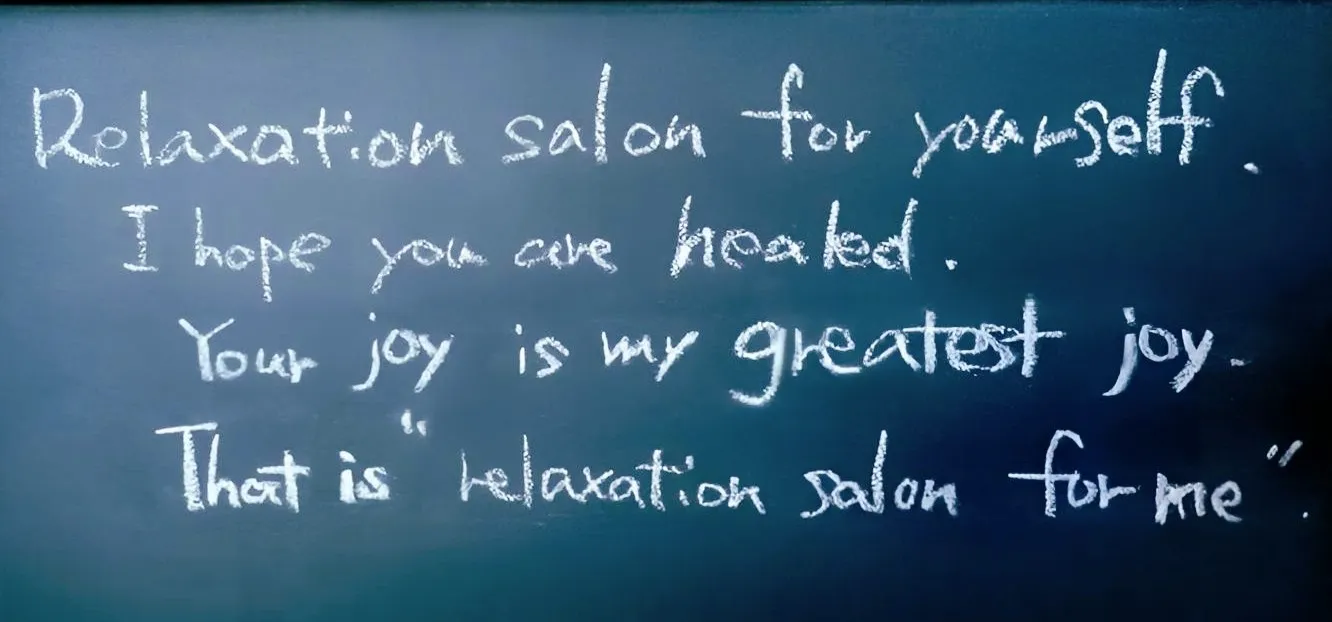 Relaxation salon for yourself.
I hope you are healed.
Your joy is my greatest joy.
That is "relaxation salon for me".